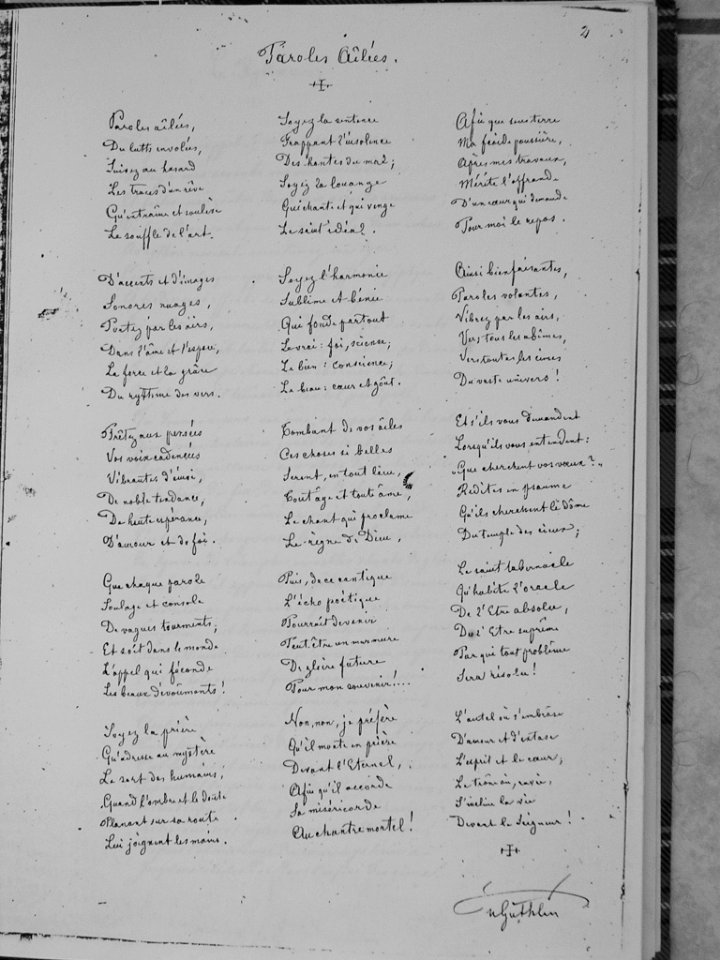 2
Paroles Ailées.
Paroles ailées,
Du luth envolées,
Luisez au hasard
Les traces d'un rêve
Qu'entraîne et soulève
Le souffle de l'art.
D'accents et d'images
Sonores nuages,
Portez par les airs,
Dans l'âme et l'espace,
La force et la grâce
Du rythme des vers.
Prêtez aux pensées
Vos voix cadencées
Vibrantes d'émoi,
De noble tendance,
De haute espérance,
D'amour et de foi.
Que chaque parole
Soulage et console
De vagues tourments;
Et soit dans le monde
L'appel qui féconde
Les beaux dévoûments!
Soyez la prière
Qu'adresse au mystère
Le sort des humains,
Quand l'ombre et le doute
Planant sur sa route
Lui joignent les mains.
Soyez la sentence
Frappant l'insolence
Des hontes du mal;
Soyez la louange
Qui chante et qui venge
Le saint idéal.
Soyez l'harmonie
Sublime et bénie
Qui fonde partout
Le vrai: foi, science;
Le bien: conscience;
Le beau: cœur et goût.
Tombant de vos ailes
Ces choses si belles
Seront, en tout lieu,
Tout âge et toute âme,
Le chant qui proclame
Le règne de Dieu,
Puis, de ce cantique
L'écho poétique
Pourrait devenir
Peut être un murmure
De gloire future
Pour mon souvenir!...
Non, non, je préfère
Qu'il monte en prière
Devant l'Eternel,
Afin qu'il accorde
Sa miséricorde
Au chantre mortel!
Afin que sous terre
Ma froide poussière,
Après mes travaux,
Mérite l'offrande
D'un cœur qui demande
Pour moi le repos.
Ainsi bienfaisantes,
Paroles volantes,
Vibrez par les airs,
Vers tous les abîmes,
Vers toutes les cimes
Du vaste univers!
Et s'ils vous demandent
Lorsqu'ils vous entendent:
"Que cherchent vos vœux?"
Redites en psaume
Qu'ils cherchent le dôme
Du temple des cieux;
Le saint tabernacle
Qu'habite l'oracle
De l'Etre absolu,
De l'Etre suprême
Par qui tout problème
Sera résolu!
L'autel où s'embrase
D'amour et d'extase
L'esprit et le cœur;
Le trône où, ravie,
S'incline la vie
Devant le Seigneur!